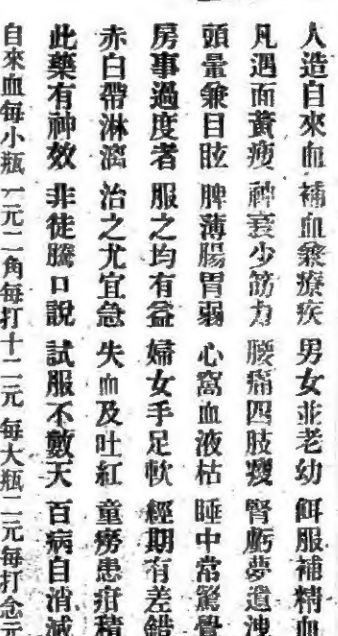 人造自來血 補血兼療疾 男女並老幼 餌服補精血
凡遇面黃瘦 神衰少筋力 腰痛四肢 腎虧夢遺洩
頭暈兼目眩 脾薄腸胃弱 心窩血液枯 睡中常驚覺
房事過度者 服之均有益 婦女手足軟 經期有差錯
赤白帶淋漓 治之尤宜急 失血及吐紅 童癆患疳積
此藥有神效 非徒騰口說 試服不數天 百病自消滅
自來血每小瓶一元二角每打十二元 每大瓶二元每打念元